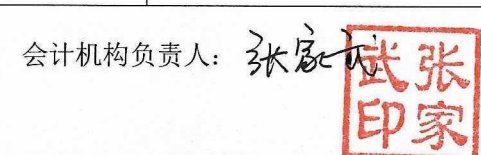 会计机构负责人：张家武
张家武印